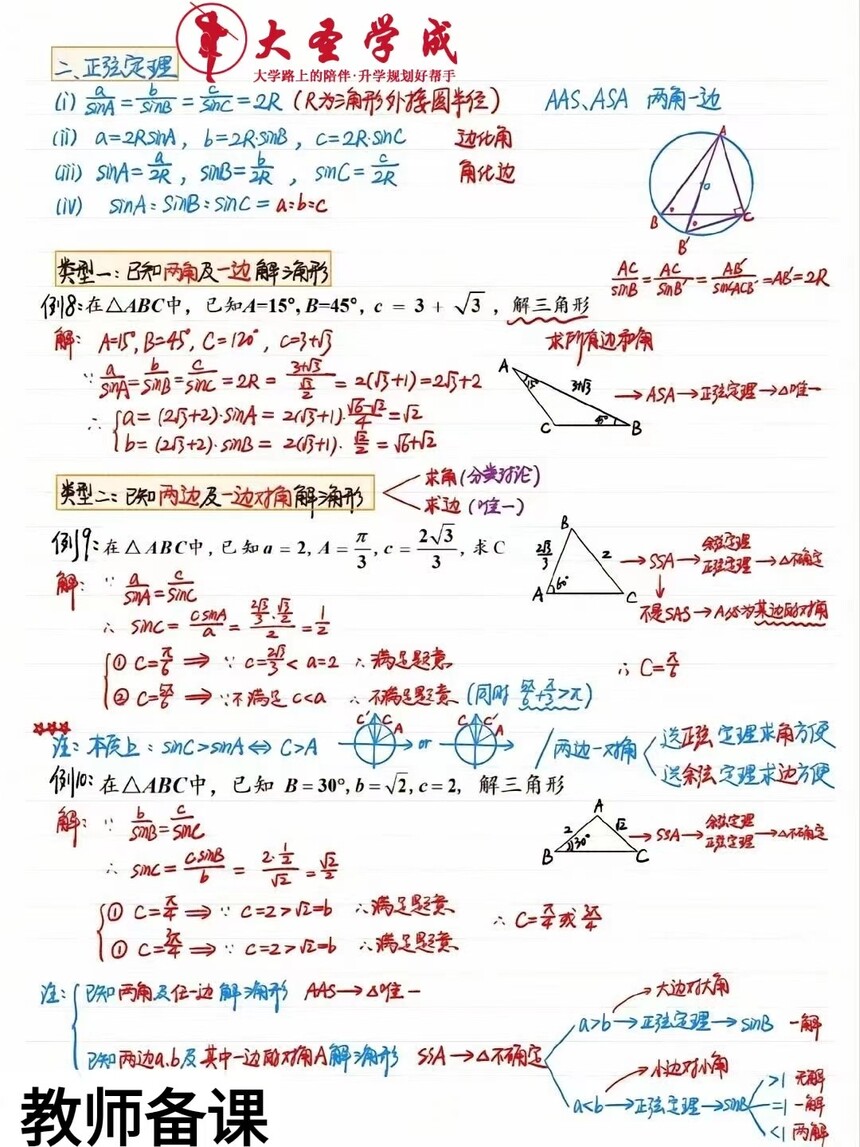 大圣学成
大学路上的陪伴·升学规划好帮手
二、正弦定理
(i) a/sinA = b/sinB = c/sinC = 2R (R为三角形外接圆半径) AAS、ASA 两角一边
(ii) a=2RsinA, b=2R·sinB, c=2R·sinC 边化角
(iii) sinA=a/2R, sinB=b/2R, sinC=c/2R 角化边
(iv) sinA:sinB:sinC=a:b:c
A
O
B
C
B'
AC/sinB = AC/sinB' = AB'/sin∠ACB' = AB' = 2R
类型一:已知两角及一边解三角形
例8:在△ABC中,已知A=15°,B=45°,c = 3 + √3,解三角形
求所有边和角
解: A=15°,B=45°,C=120°,c=3+√3
∵ a/sinA=b/sinB=c/sinC=2R=(3+√3)/(√3/2)=2(√3+1)=2√3+2
∴ {a=(2√3+2)·sinA=2(√3+1)·(√6-√2)/4=√2
b=(2√3+2)·sinB=2(√3+1)·√2/2=√6+√2
A 15° 3+√3 C 45° B
→ASA→正弦定理→△唯一
类型二:已知两边及一边对角解三角形
求角(分类讨论)
求边(唯一)
例9:在△ABC中,已知a=2,A=π/3,c=2√3/3,求C
解: ∵ a/sinA=c/sinC
∴ sinC=csinA/a=(2√3/3·√3/2)/2=1/2
{① C=π/6 ⇒ ∵ c=2√3/3<a=2 ∴满足题意
② C=5π/6 ⇒ ∵不满足c<a ∴不满足题意(同时5π/6+π/3>π)
∴ C=π/6
B 2√3/3 2 A 60° C
→SSA→余弦定理 正弦定理→△不确定
不是SAS→A必为某边的对角
注:本质上:sinC>sinA⇔C>A
C' C A or C C' A
两边一对角
选正弦定理求角方便
选余弦定理求边方便
例10:在△ABC中,已知 B=30°,b=√2,c=2, 解三角形
解: ∵ b/sinB=c/sinC
∴ sinC=csinB/b=(2·1/2)/√2=√2/2
{① C=π/4 ⇒ ∵ c=2>√2=b ∴满足题意
① C=3π/4 ⇒ ∵ c=2>√2=b ∴满足题意
∴ C=π/4或3π/4
A 2 √2 B 30° C
→SSA→余弦定理 正弦定理→△不确定
注:{已知两角及任一边解三角形 AAS→△唯一
已知两边a.b及其中一边的对角A解三角形 SSA→△不确定
→大边对大角
a>b→正弦定理→sinB 一解
→小边对小角
a<b→正弦定理→sinB
>1 无解
=1 一解
<1 两解
教师备课